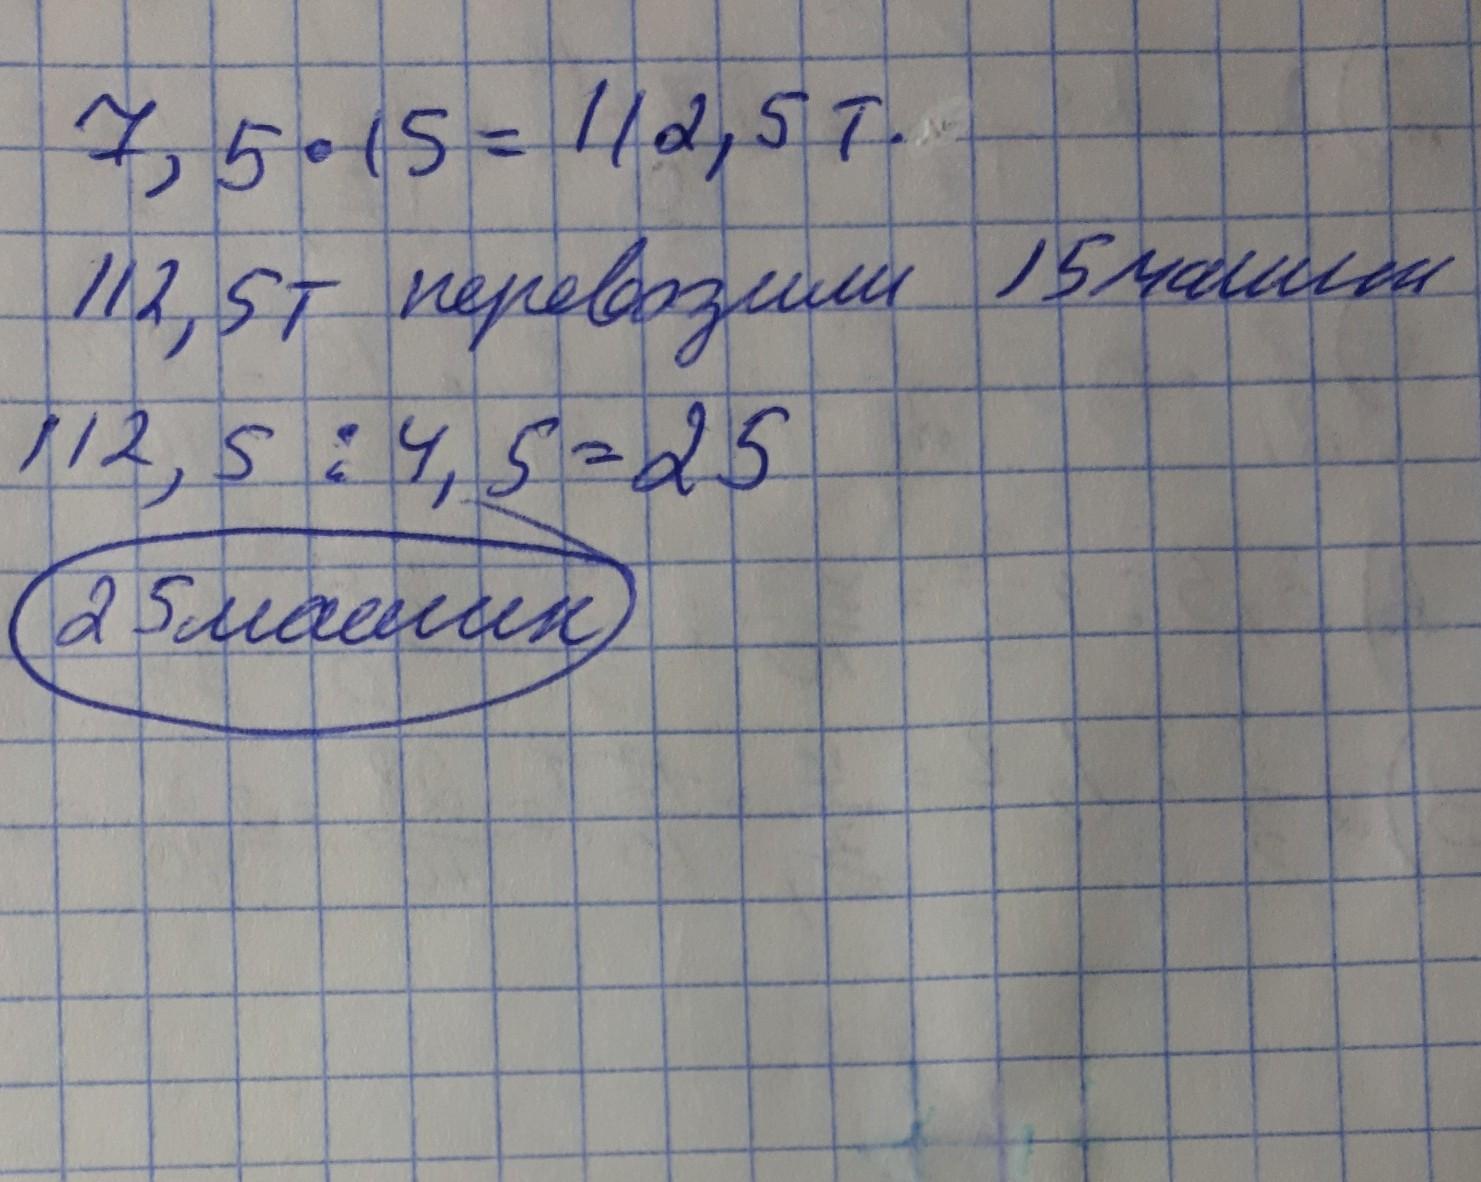 7,5•15=112,5 т.
112,5т перевозили 15машин
112,5:4,5=25
25машин